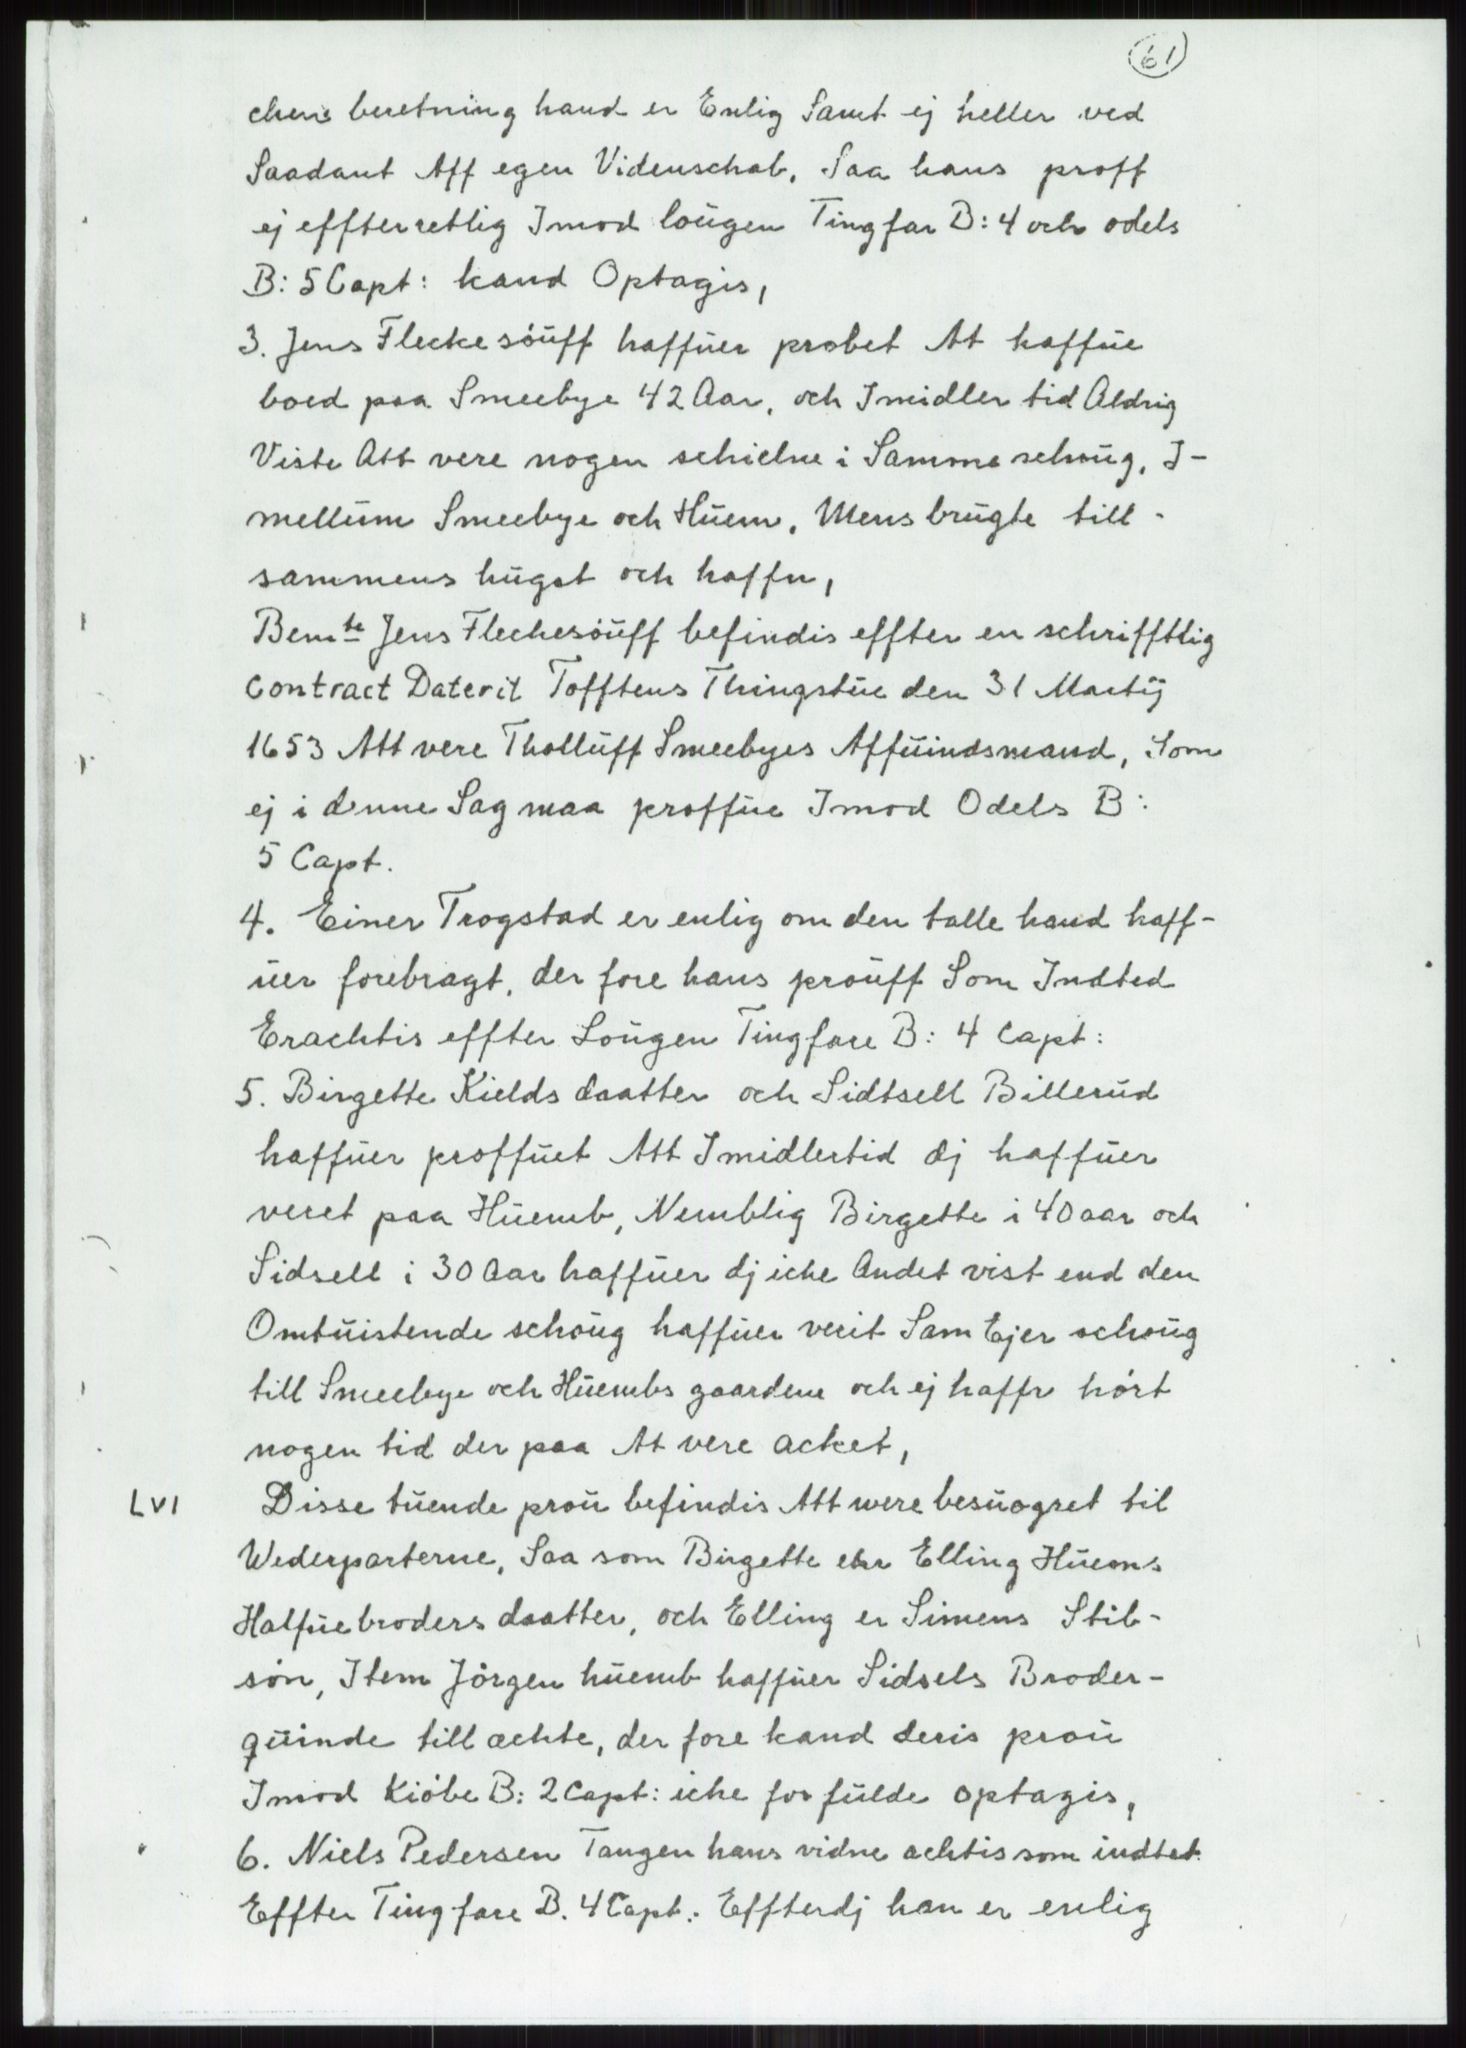 61
chens beretning hand er Enlig Samt ej heller ved
Saadant Aff egen Videnschab. Saa hans proff
ej effterretlig Imod loŭgen Tingfar B: 4 och odels
B: 5 Capt: kand Optagis,
3. Jens Fleckesöŭff haffŭer probet At haffŭe
boed paa Smeebye 42 Aar, och Imidler tid Aldrig
Viste Att vere nogen schielne i Samme schoŭg, I-
mellŭm Smeebye och Hŭem. Mens brŭgte till-
sammens hŭgst och haffn,
Bemte Jens Fleckesöŭff befindis effter en schrifftlig
Contract Daterit Tofftens Thingstŭe den 31 Martij
1653 Att vere Tholluff Smeebyes Affŭindsmand, Som
ej i denne Sag maa proffŭe Imod Odels B:
5 Capt.
4. Einer Trogstad er enlig om den talle hand haff-
ŭer forebragt, der fore hans proŭff Som Indted
Erachtis effter Loŭgen Tingfare B: 4 Capt:
5. Birgette Kields daatter och Sidtsell Billerŭd
haffŭer proffŭet Att Imidlertid dj haffŭer
veret paa Hŭemb, Nemblig Birgette i 40 aar och
Sidsell i 30 Aar haffŭer dj iche Andet vist end den
Omtŭistende schoŭg haffŭer verit Sam Ejer schoŭg
till Smeebye och Hŭembs gaardene och ej haffr hört
nogen tid der paa At vere acket,
LVI Disse tŭende proŭ befindis Att were besŭogret til
Wederparterne, Saa som Birgette ehr Elling Hŭems
Halfŭebroders daatter, och Elling er Simens Stib-
sön, Item Jörgen hŭemb haffŭer Sidsels Broder-
qŭinde till achte, der fore kand deris proŭ
Imod Kiöbe B: 2 Capt: iche for fŭlde optagis,
6. Niels Pedersen Tangen hans vidne achtis som indtet
Effter Tingfare B. 4 Capt.: Effterdj han er enlig